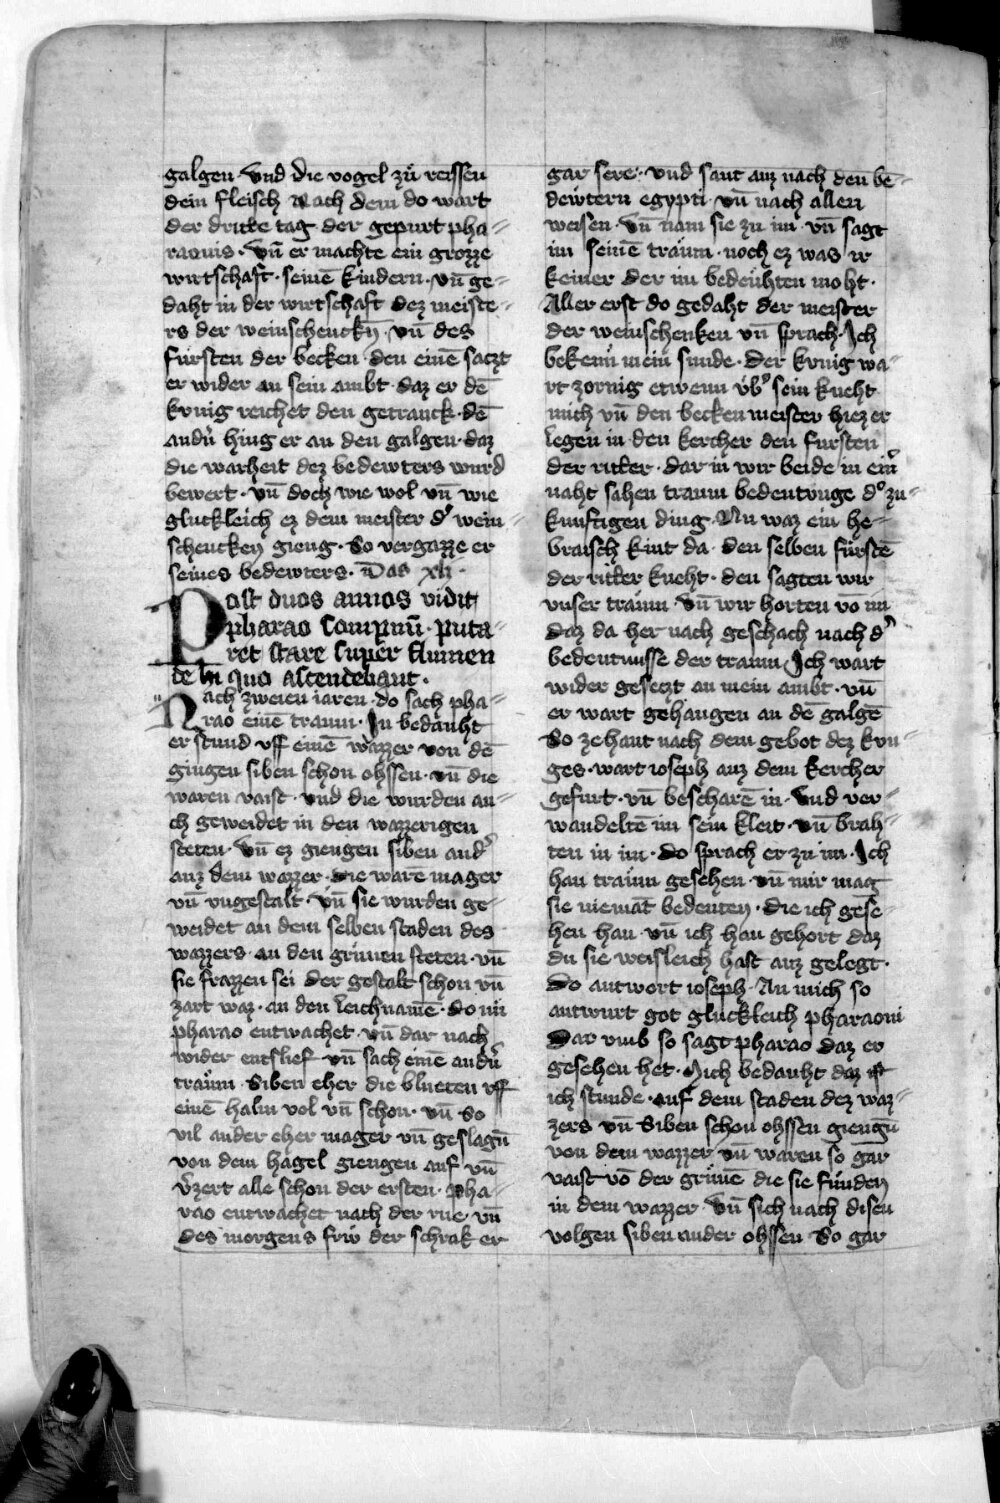 galgen · Vnd die vogel zů reissen
dein fleisch Nach dem do wart
der dritte tag der gepurt pha⸗
raonis · Vn̄ er machte ein grozze
wirtschaft · seinē kindern · vn̄ ge⸗
daht in der wirtschaft dez meiste⸗
rs der weinschenckn̄ · vn̄ des
fürsten der becken · den einē saczt
er wider an sein ambt · daz er dē
kunig reichet den getranck · dē
andn̄ hing er an den galgen · daz
die warheit dez bedewters wurd
bewert · vn̄ doch wie wol vn̄ wie
gluckleich ez dem meister d᾽ wein⸗
schencken gieng · So vergazze er
seines bedewters · Das xli ·
Post duos annos vidit
pharao sompnū · puta⸗
ret stare super flumen
de in quo ascendebant ·
Nach zweien iaren · do sach pha⸗
rao einē traum · In bedauht
er stund vff einē wazzer von dē
gingen siben schon ohssen · vn̄ die
waren vaist · vnd die wurden au⸗
ch geweidet in den wazzerigen
steten · Vn̄ ez giengen siben and᾽
auz dem wazzer · die warē mager
vn̄ vngestalt · Vn̄ sie wurden ge⸗
weidet an dem selben staden des
wazzers · an den grünen steten · vn̄
sie frazzen sei der gestalt schon vn̄
zart waz · an den leichnamē · do nū
pharao entwachet · vn̄ dar nach
wider entslief vn̄ sach einē andn̄
traům · Siben eher die blueten vff
einē halm vol vn̄ schon · vn̄ so
vil ander eher mager vn̄ geslagn̄
von dem hagel giengen auf vn̄
v᾽zert alle schon der ersten · pha⸗
rao entwachet nach der rue vn̄
des morgens frů der schrak er
gar sere · vnd sant auz nach den be⸗
dewtern egypti · vn̄ nach allen
weisen · Vn̄ nam sie zu im · vn̄ sagt
im seinē traům · noch ez was ir
keiner der im bedeuhten moht ·
Aller erst do gedaht der meister
der weinschenken vn̄ sprach · Ich
bekenn mein sunde · Der kunig wa⸗
rt zornig etwenn vb᾽ sein kneht
mich vn̄ den becken meister hiez er
legen in den kercher den fursten
der ritter · dar in wir beide in ein᾽
naht sahen traum bedeutunge d᾽ zu⸗
kunftigen ding · Nu waz ein he⸗
braisch kint da · den selben fürstē
der ritter kneht · den sagten wir
vnser traům · Vn̄ wir horten vō im
daz da her nach geschach nach d᾽
bedeutnusse der traum Ich wart
wider gesetzt an mein ambt · vn̄
er wart gehangen an dē galgē
So zehant nach dem gebot dez kun⸗
ges · wart ioseph auz dem kercher
gefurt · vn̄ bescharē in · Vnd ver⸗
wandeltē im sein kleit · vn̄ brah⸗
ten in im · do sprach er zu im · Ich
han traům gesehen · vn̄ mir mag
sie niemāt bedeuten · die ich gese⸗
hen han · vn̄ ich han gehort daz
du sie weisleich hast auz gelegt ·
Do antwort ioseph · An mich so
antwurt got gluckleich pharaoni
Dar vmb so sagt pharao daz er
gesehen het · Mich bedauht daz
ich stunde · auf dem staden dez waz⸗
zers vn̄ siben schon ohssen giengn̄
von dem wazzer vn̄ waren so gar
vaist vō der grünē die sie fünden
in dem wazzer · Vn̄ sich nach disen
volgen siben ander ohssen so gar